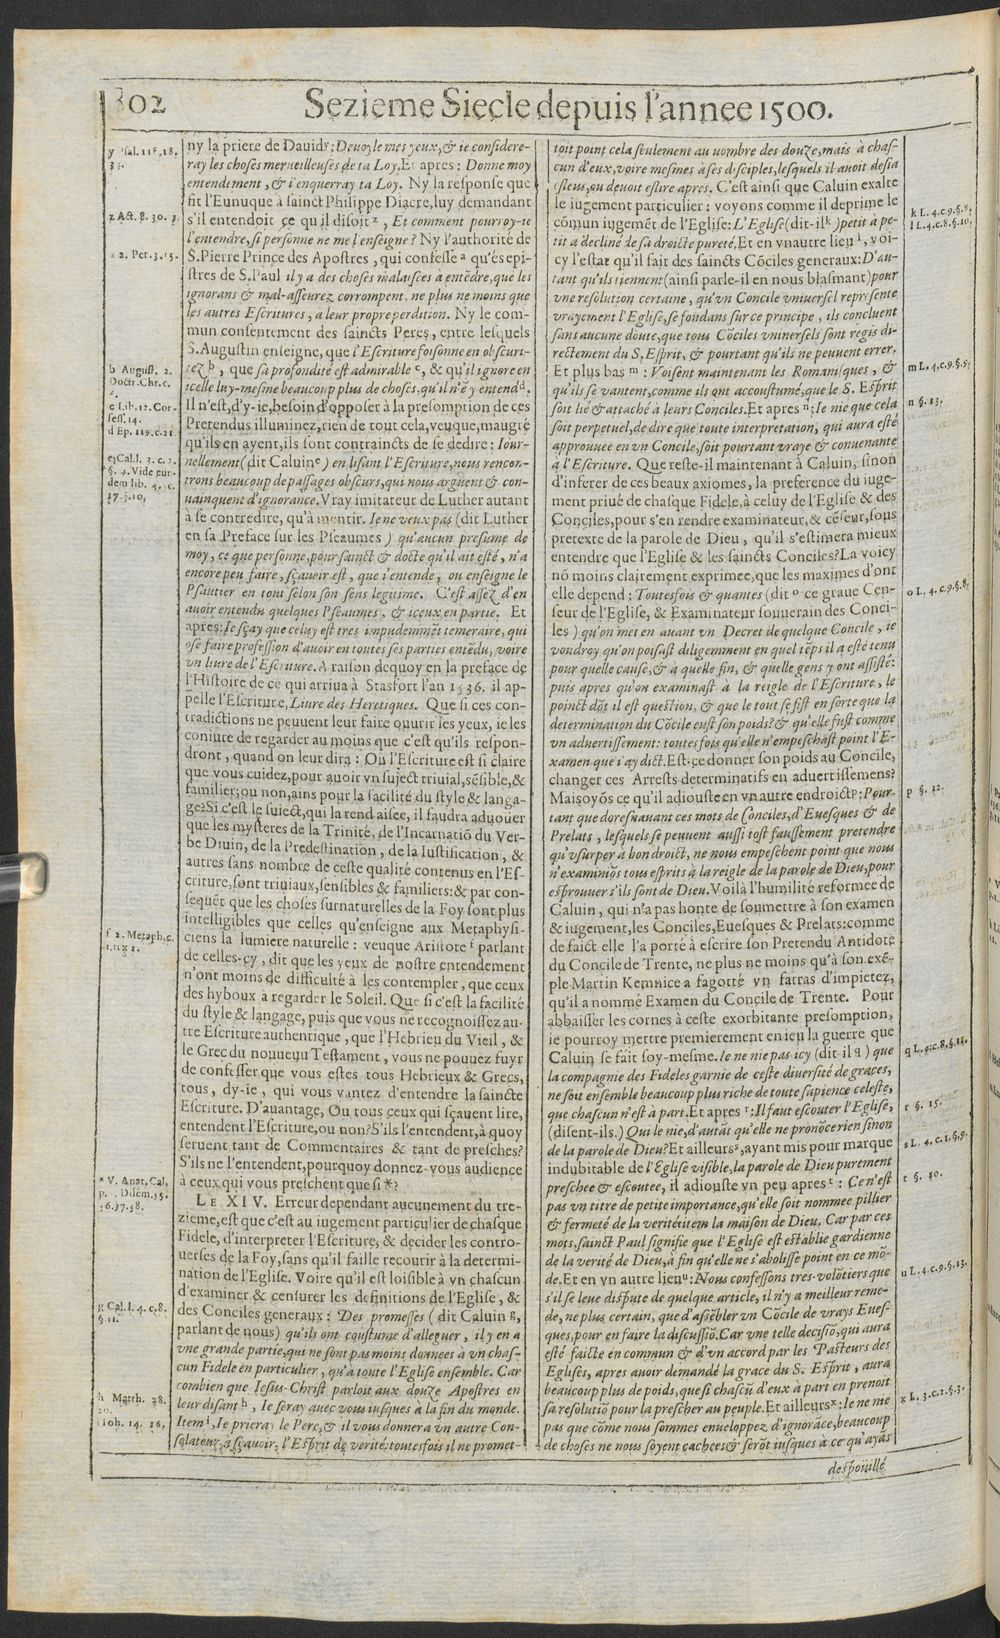 302
Sezieme Siecle depuis l'annee 1500.
ny la priere de Dauidy; Deuoyle mes yeux, & ie considere-
ray les choses merueilleuses de ta Loy. Et apres: Donne moy
entendement, & i'enquerray ta Loy. Ny la response que
fit l'Eunuque à sainct Philippe Diacre, luy demandant
s'il entendoit ce qu'il disoit z, Et comment pourroy-ie
l'entendre, si personne ne me l'enseigne? Ny l'authorité de
S. Pierre Prince des Apostres, qui confesse a qu'és epi-
stres de S. Paul il y a des choses malaisees à entẽdre, que les
ignorans & mal-asseurez corrompent, ne plus ne moins que
les autres Escritures, a leur propre perdition. Ny le com-
mun consentement des saincts Peres, entre lesquels
S. Augustin enseigne, que l'Escriture foisonne en obscuri-
tez b, que sa profondité est admirable c, & qu'il ignore en
icelle luy-mesme beaucoup plus de choses, qu'il n'ẽ y entend d.
Il n'est, dy-ie, besoin d'opposer à la presomption de ces
Pretendus illuminez, rien de tout cela, veuque, maugré
qu'ils en ayent, ils sont contraincts de se dedire: Iour-
nellement (dit Caluin e) en lisant l'Escriture, nous rencon-
trons beaucoup de passages obscurs, qui nous arguent & con-
uainquent d'ignorance. Vray imitateur de Luther autant
à se contredire, qu'à mentir. Ie ne veux pas (dit Luther
en sa Preface sur les Pseaumes) qu'aucun presume de
moy, ce que personne, pour sainct & docte qu'il ait esté, n'a
encore peu faire, sçauoir est, que i'entende, ou enseigne le
Psautier en tout selon son sens legitime. C'est assez d'en
auoir entendu quelques Pseaumes, & iceux en partie. Et
apres: Ie sçay que celuy est tres impudemmẽt temeraire, qui
ose faire profession d'auoir en toutes ses parties entẽdu, voire
vn liure de l'Escriture. A raison dequoy en la preface de
l'Histoire de ce qui arriua à Stasfort l'an 1536. il ap-
pelle l'Escriture, Liure des Heretiques. Que si ces con-
tradictions ne peuuent leur faire ouurir les yeux, ie les
coniure de regarder au moins que c'est qu'ils respon-
dront, quand on leur dira: Ou l'Escriture est si claire
que vous cuidez, pour auoir vn suject triuial, sẽsible, &
familier; ou non, ains pour la facilité du style & langa-
ge? Si c'est le suiect, qui la rend aisee, il faudra aduoüer
que les mysteres de la Trinité, de l'Incarnatiõ du Ver-
be Diuin, de la Predestination, de la Iustification, &
autres sans nombre de ceste qualité contenus en l'Es-
criture, sont triuiaux, sensibles & familiers: & par con-
sequẽt que les choses surnaturelles de la Foy sont plus
intelligibles que celles qu'enseigne aux Metaphysi-
ciens la lumiere naturelle: veuque Aristote f parlant
de celles-cy, dit que les yeux de nostre entendement
n'ont moins de difficulté à les contempler, que ceux
des hyboux à regarder le Soleil. Que si c'est la facilité
du style & langage, puis que vous ne recognoissez au-
tre Escriture authentique, que l'Hebrieu du Vieil, &
le Grec du nouueau Testament, vous ne pouuez fuyr
de confesser que vous estes tous Hebrieux & Grecs,
tous, dy-ie, qui vous vantez d'entendre la saincte
Escriture. D'auantage, Ou tous ceux qui sçauent lire,
entendent l'Escriture, ou non? S'ils l'entendent, à quoy
seruent tant de Commentaires & tant de presches?
S'ils ne l'entendent, pourquoy donnez-vous audience
à ceux qui vous preschent que si *?
LE XIV. Erreur dependant aucunement du tre-
zieme, est que c'est au iugement particulier de chasque
Fidele, d'interpreter l'Escriture, & decider les contro-
uerses de la Foy, sans qu'il faille recourir à la determi-
nation de l'Eglise. Voire qu'il est loisible à vn chascun
d'examiner & censurer les definitions de l'Eglise, &
des Conciles generaux: Des promesses (dit Caluin g,
parlant de nous) qu'ils ont coustume d'alleguer, il y en a
vne grande partie, qui ne sont pas moins donnees à vn chas-
cun Fidele en particulier, qu'à toute l'Eglise ensemble. Car
combien que Iesus-Christ parloit aux douze Apostres en
leur disant h, Ie seray auec vous iusques à la fin du monde.
Item i, Ie prieray le Pere, & il vous donnera vn autre Con-
solateur, asçauoir, l'Esprit de verité: toutesfois il ne promet-
y Psal. 118. 18.
34.
z Act. 8. 30. 3.
a 2. Pet. 3. 15.
b August. 2.
Doctr. Chr. c.
c Lib. 12. Con-
fess. 14.
d Ep. 119. c. 21
e Cal. l. 3. c. 2.
§. 4. Vide eun-
dem lib. 4. c.
17. §. 10,
f 2. Metaph. c.
* V. Anat. Cal.
36. 37. 38.
g Cal. l. 4. c. 8.
§. 11.
h Matth. 28.
20.
i Ioh. 14. 16.
toit point cela seulement au nombre des douze, mais à chas-
cun d'eux, voire mesmes à ses disciples, lesquels il auoit desia
esleus, ou deuoit eslire apres. C'est ainsi que Caluin exalte
le iugement particulier: voyons comme il deprime le
cõmun iugemẽt de l'Eglise: L'Eglise (dit-il k) petit à pe-
tit a decliné de sa droicte pureté. Et en vn autre lieu l, voi-
cy l'estat qu'il fait des saincts Cõciles generaux: D'au-
tant qu'ils tiennent (ainsi parle-il en nous blasmant) pour
vne resolution certaine, qu'vn Concile vniuersel represente
vrayement l'Eglise, se fondans sur ce principe, ils concluent
sans aucune doute, que tous Cõciles vniuersels sont regis di-
rectement du S. Esprit, & pourtant qu'ils ne peuuent errer.
Et plus bas m: Voisent maintenant les Romanisques, &
qu'ils se vantent, comme ils ont accoustumé, que le S. Esprit
soit lié & attaché à leurs Conciles. Et apres n: Ie nie que cela
soit perpetuel, de dire que toute interpretation, qui aura esté
approuuee en vn Concile, soit pourtant vraye & conuenante
à l'Escriture. Que reste-il maintenant à Caluin, sinon
d'inferer de ces beaux axiomes, la preference du iuge-
ment priué de chasque Fidele, à celuy de l'Eglise & des
Conciles, pour s'en rendre examinateur, & cẽseur, sous
pretexte de la parole de Dieu, qu'il s'estimera mieux
entendre que l'Eglise & les saincts Conciles? La voicy
nõ moins clairement exprimee, que les maximes d'ont
elle depend: Toutesfois & quantes (dit o ce graue Cen-
seur de l'Eglise, & Examinateur souuerain des Conci-
les) qu'on met en auant vn Decret de quelque Concile, ie
voudroy qu'on poisast diligemment en quel tẽps il a esté tenu
pour quelle cause, & à quelle fin, & quelle gens y ont assisté:
puis apres qu'on examinast à la reigle de l'Escriture, le
poinct dõt il est question, & que le tout se fist en sorte que la
determination du Cõcile eust son poids? & qu'elle fust comme
vn aduertissement: toutesfois qu'elle n'empeschast point l'E-
xamen que i'ay dict. Est-ce donner son poids au Concile,
changer ces Arrests determinatifs en aduertissemens?
Mais oyõs ce qu'il adiouste en vn autre endroict p: Pour-
tant que doresnauant ces mots de Conciles, d'Euesques & de
Prelats, lesquels se peuuent aussi tost faussement pretendre
qu'vsurper a bon droict, ne nous empeschent point que nous
n'examiniõs tous esprits à la reigle de la parole de Dieu, pour
esprouuer s'ils sont de Dieu. Voilà l'humilité reformee de
Caluin, qui n'a pas honte de soumettre à son examen
& iugement, les Conciles, Euesques & Prelats: comme
de faict elle l'a porté à escrire son Pretendu Antidote
du Concile de Trente, ne plus ne moins qu'à son exẽ-
ple Martin Kemnice a fagotté vn fatras d'impietez,
qu'il a nommé Examen du Concile de Trente. Pour
abbaisser les cornes à ceste exorbitante presomption,
ie pourroy mettre premierement en ieu la guerre que
Caluin se fait soy-mesme. Ie ne nie pas icy (dit-il q) que
la compagnie des Fideles garnie de ceste diuersité de graces,
ne soit ensemble beaucoup plus riche de toute sapience celeste,
que chascun n'est à part. Et apres r: Il faut escouter l'Eglise,
(disent-ils.) Qui le nie, d'autãt qu'elle ne pronõce rien sinon
de la parole de Dieu? Et ailleurs s, ayant mis pour marque
indubitable de l'Eglise visible, la parole de Dieu purement
preschee & escoutee, il adiouste vn peu apres t: Ce n'est
pas vn titre de petite importance, qu'elle soit nommee pillier
& fermeté de la verité: item la maison de Dieu. Car par ces
mots, sainct Paul signifie que l'Eglise est establie gardienne
de la verité de Dieu, à fin qu'elle ne s'abolisse point en ce mõ-
de. Et en vn autre lieu u: Nous confessons tres-volõtiers que
s'il se leue dispute de quelque article, il n'y a meilleur reme-
de, ne plus certain, que d'assẽbler vn Cõcile de vrays Eues-
ques, pour en faire la discussiõ. Car vne telle decisiõ, qui aura
esté faicte en commun & d'vn accord par les Pasteurs des
Eglises, apres auoir demandé la grace du S. Esprit, aura
beaucoup plus de poids, que si chascũ d'eux à part en prenoit
sa resolutiõ pour la prescher au peuple. Et ailleurs x: Ie ne nie
pas que cõme nous sommes enueloppez d'ignorãce, beaucoup
de choses ne nous soyent cachees & serõt iusques à ce qu'ayãs
despoüillé
k L. 4. c. 9. §. 8.
l L. 4. c. 8. §. 10.
m L. 4. c. 9. §. 9.
n §. 13.
o L. 4. c. 9. §. 8.
p §. 12.
q L. 4. c. 8. §. 11.
r §. 15.
s L. 4. c. 1. §. 9.
t §. 10.
u L. 4. c. 9. §. 13.
x L. 3. c. 2. §. 3.